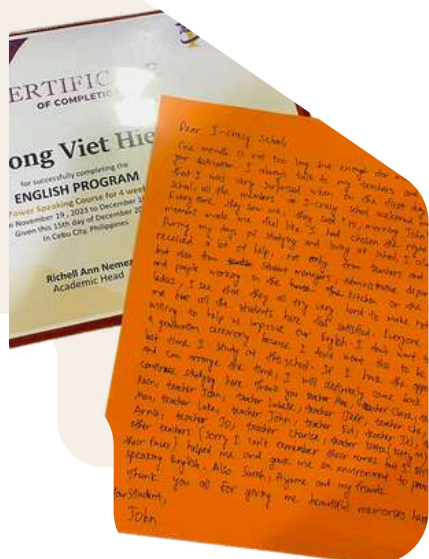 ERTIFIC
OF COMPLETIO
ong Viet Hie
for successfully completing the
ENGLISH PROGRAM
Power Speaking Course for 4 week
November 19, 2023 to December 1
Given this 15th day of December 20
In Cebu City, Philippines
Richell Ann Neme
Academic Head
Dear I-crazy School,
One month is not too long but enough for
your dedication. I always talk to my teachers and
that I was very surprised when on the first da
School, all the members in I-crazy School welcomed
Every time they saw me, they said "Hi, morning John
moment made me feel like I had chosen the right
During my days of studying and living at school, I
received a lot of help, not only from teachers and
but also from student managers, administrative depar
and people working in the kitchen or the
ladies, I see that they all try very hard to make not
me but all the students here feel satisfied. Everyone
willing to help us improve our English. I don't want to
a graduation ceremony because I don't want this to be
last time I study at this school. If I have the oppor
and can arrange the time, I will definitely come back
continue studying here. Thank you teacher teacher
teacher teacher teacher teacher
teacher teacher John, teacher Ed, teacher
teacher JD, teacher Charlie, teacher
other teachers (Sorry I can't remember their names but I
their faces) helped me and gave me an environment to
speaking English. Also Sarah, and my friends.
Thank you all for giving me beautiful memories
Your student,
John